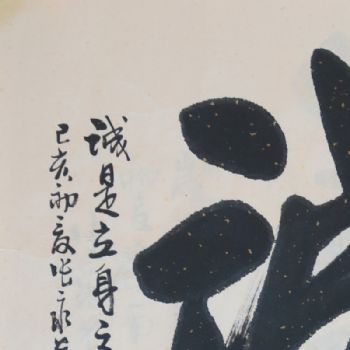 诚是立身之
己亥初夏张永